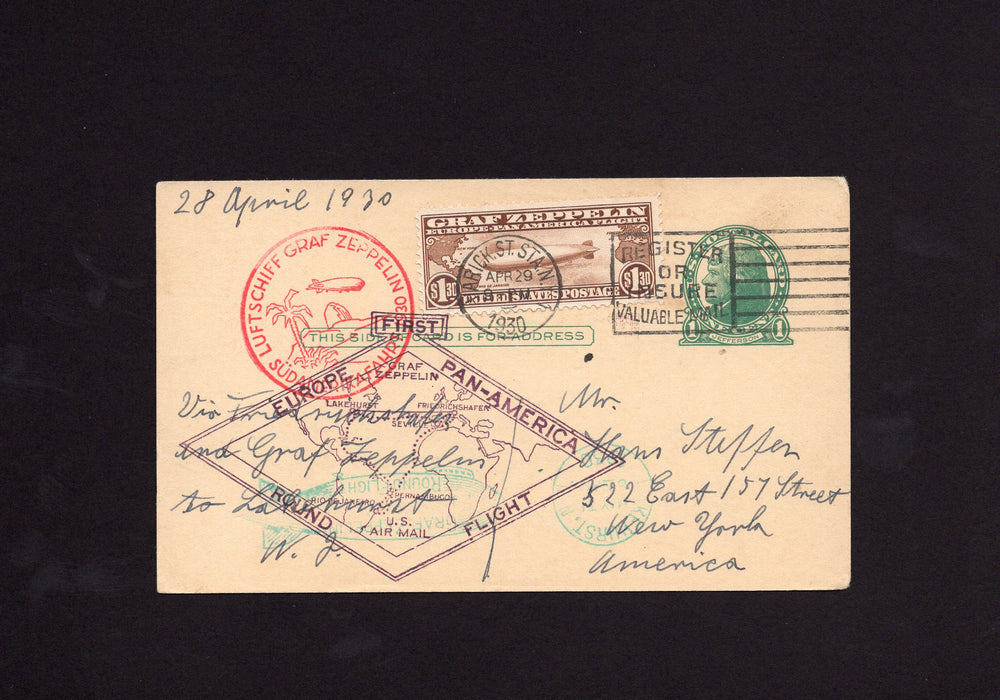 28 April 1930
GRAF ZEPPELIN
EUROPE-PAN AMERICA FLIGHT
$1.30 $1.30
UNITED STATES POSTAGE
VARICK.ST.STA.N.Y.
APR 29
1930
REGISTER
OR
INSURE
VALUABLE MAIL
1 1
JEFFERSON
LUFTSCHIFF GRAF ZEPPELIN 1930
SÜDAMERIKAFAHRT
THIS SIDE OF CARD IS FOR ADDRESS
FIRST
EUROPE PAN-AMERICA
GRAF
ZEPPELIN
LAKEHURST FRIEDRICHSHAFEN
SEVILLE
RIO DE JANEIRO PERNAMBUCO
U.S.
AIR MAIL
ROUND FLIGHT
Via Friedrichshafen
and Graf Zeppelin
to Lakehurst
N. J.
Mr.
Hans Steffen
522 East 157 Street
New York
America